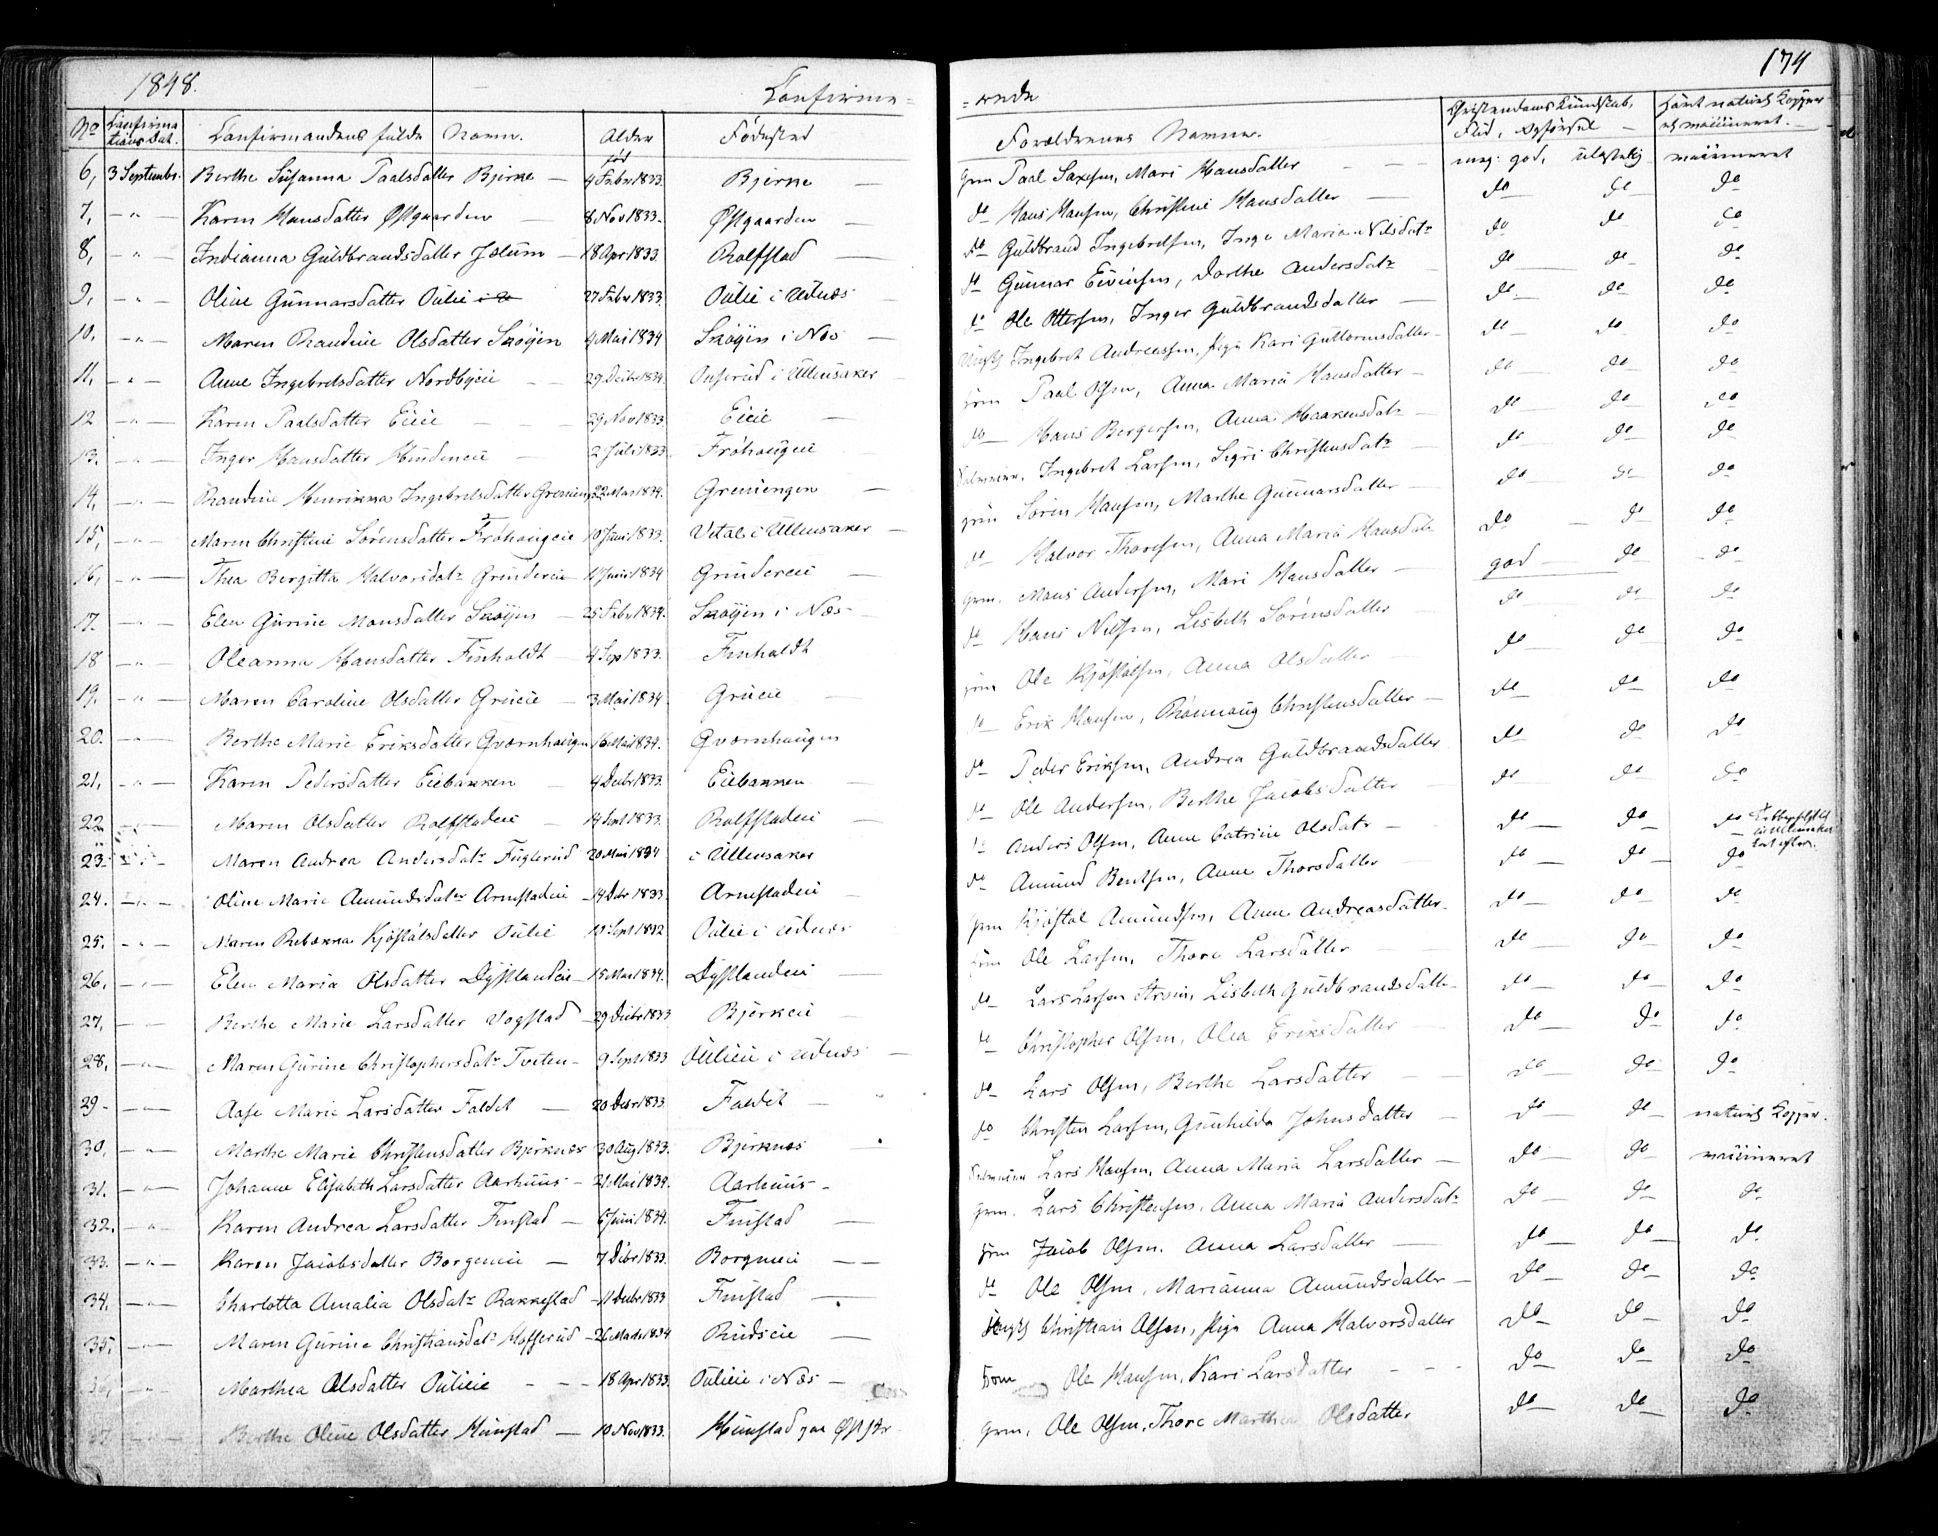 1848. Confirme= =rede 174
No Confirmations Dat. Confirmandens fulde Navn. Alder Fødested Forældrenes Navne. Christendoms Kundskab, Flid, Opførsel havt naturl. Kopper el. vaccineret.
6, 3 Septembr. Berthe Susanna Paalsdatter Bjerke — født 4 Febr 1833. Bjerke — Grm Paal Saxesen, Mari Hansdatter — meg: god, ulastelig vaccineret
7, — " — Karen Hansdatter Østgaarden — 8 Nov 1833. Østgaarden — do Hans Hansen, Christine Hansdatter — do do do
8, — " — Indianna Guldbrandsdatter Jælum — 18 Apr 1833. Rolfstad — do Guldbrand Ingebretsen, Inge Maria Nilsdatr do do do
9, — " — Oline Gunnarsdatter Oulie 27 Febr 1833. Oulie i Udnæs do Gunnar Eivindsen, Dorthe Andersdatr do do do
10, — " — Maren Randine Olsdatter Skøyen 4 Mai 1834 Skøyen i Næs — do Ole Ottersen, Inger Guldbrandsdatter — do do do
11, — " — Anne Ingebretsdatter Nordbyeie — 29 Decbr 1834. i Ullensaker Ungkl Ingebret Andreassen, Pige Kari Guttormsdatter — do do do
12 — " — Karen Paalsdatter Eieie — 29 Nov 1833. Eieie — Grm Paal Olsen, Anna Maria Hansdatter — do do do
13. — " — Inger Hansdatter — 2 Juli 1833 Frøhougeie do Hans Bergersen, Anna Haakensdatr — do do do
14, — " — Randine Henrikka Ingebretsdatter Greniengen 22 Mar 1834. Greniengen — Ingebret Larsen, Sigri Christensdatr — do do do
15, — " — Maren Christine Sørensdatter Frøhougeie 10 Juni 1833. Vetal i Ullensaker — Grm Søren Hansen, Marthe Gunnarsdatter — do do do
16, — " — Thea Bergitta Halvorsdatr Grindereie 11 Juni 1834 Grindereie — do Halvor Thoresen, Anna Maria Hansdatr do do do
17 — " — Elen Gurine Monsdatter Skøyen — 25 Febr 1834. Skøyen i Næs — Grm. Mons Andersen, Mari Hansdatter — god do do
18 — " — Oleanna Hansdatter Finholdt — 4 Sep 1833. Finholdt do Hans Nilsen, Lisbeth Sørensdatter do do do
19. — " — Maren Caroline Olsdatter Grueie — 3 Mai 1834. Grueie — Grm Ole Kjøstolsen, Anna Olsdatter — do do do
20. — " — Berthe Marie Eriksdatter Gværnhaugen 16 Mai 1834. Gværnhaugen do Erik Hansen, Rønnaug Christensdatter — do do do
21, — " — Karen Pedersdatter Eiebakken — 4 Decbr 1833. Eiebakken — do Peder Eriksen, Andrea Guldbrandsdatter do do do
22 — " — Maren Olsdatter Rolfstadeie — 14 Sept 1833. Rolfstadeie — do Ole Andersen, Berthe Jacobsdatter — do do do
23. — " — Maren Andrea Andersdatr Fuglerud 20 Mai 1834 i Ullensaker do Anders Olsen, Anne Catrine Olsdatr — do do do
24. — " — Oline Marie Amundsdatr Arnestadeie — 14 Decbr 1833. Arnestadeie — do Amund Bentsen, Anne Thorsdatter — do do do
25. — " — Maren Rebækka Kjøstolsdatter Oulie 13 Sept 1832 Oulie i Udnæs Grm Kjøstol Amundsen, Anne Andreasdatter. do do do
26, — " — Elen Maria Olsdatter Dystlandeie — 15 Mar 1834. Dystlandeie — Grm Ole Larsen, Thore Larsdatter do do do
27, — " — Berthe Marie Larsdatter Vogstad — 29 Decbr 1833 Bjerkeie — do Lars Larsen Strøm, Lisbeth Guldbrandsdatter do do do
28, — " — Maren Gurine Christophersdatr Tveiten — 9 Sept 1833 Oulieie i Udnæs — do Christopher Olsen, Olea Eriksdatter do do do
29 — " — Aase Marie Larsdatter Faldet — 20 Decbr 1833 Faldet — do Lars Olsen, Berthe Larsdatter — do do do
30, — " — Marthe Marie Christensdatter Bjerknæs 30 Aug 1833. Bjerknæs — do Christen Larsen, Gunhilda Johnsdatter — do do naturl. Kopper.
31. — " — Johanne Elisabeth Larsdatter Aarhuus — 21 Mai 1834. Aarhuus — Lars Hansen, Anna Maria Larsdatter — do do vaccineret
32. — " — Karen Andrea Larsdatter Finstad — 6 Juni 1834. Finstad — Grm. Lars Christensen, Anna Maria Andersdatr do do do
33. — " — Karen Jacobsdatter Borgeneie — 7 Decbr 1833. Borgeneie — Grm Jacob Olsen. Anna Larsdatter — do do do
34. — " — Charlotta Amalia Olsdatr Rakkestad — 11 Decbr 1833 Finstad — do Ole Olsen, Marianna Amundsdatter — do do do
35, — " — Maren Gurine Christiansdatr Hofserud — 26 Marts 1834 Rudseie — Ungkl Christian Olsen, Pige Anna Halvorsdatter do do do
36, — " — Marthea Olsdatter Oulieie — 18 Apr 1833. Oulieie i Næs — Grm Ole Hansen, Kari Larsdatter — do do do
37 — " — Berthe Oline Olsdatter Hunstad — 10 Nov 1833. Hunstad paa Grm. Ole Olsen, Thore Marthea Olsdatter do do do